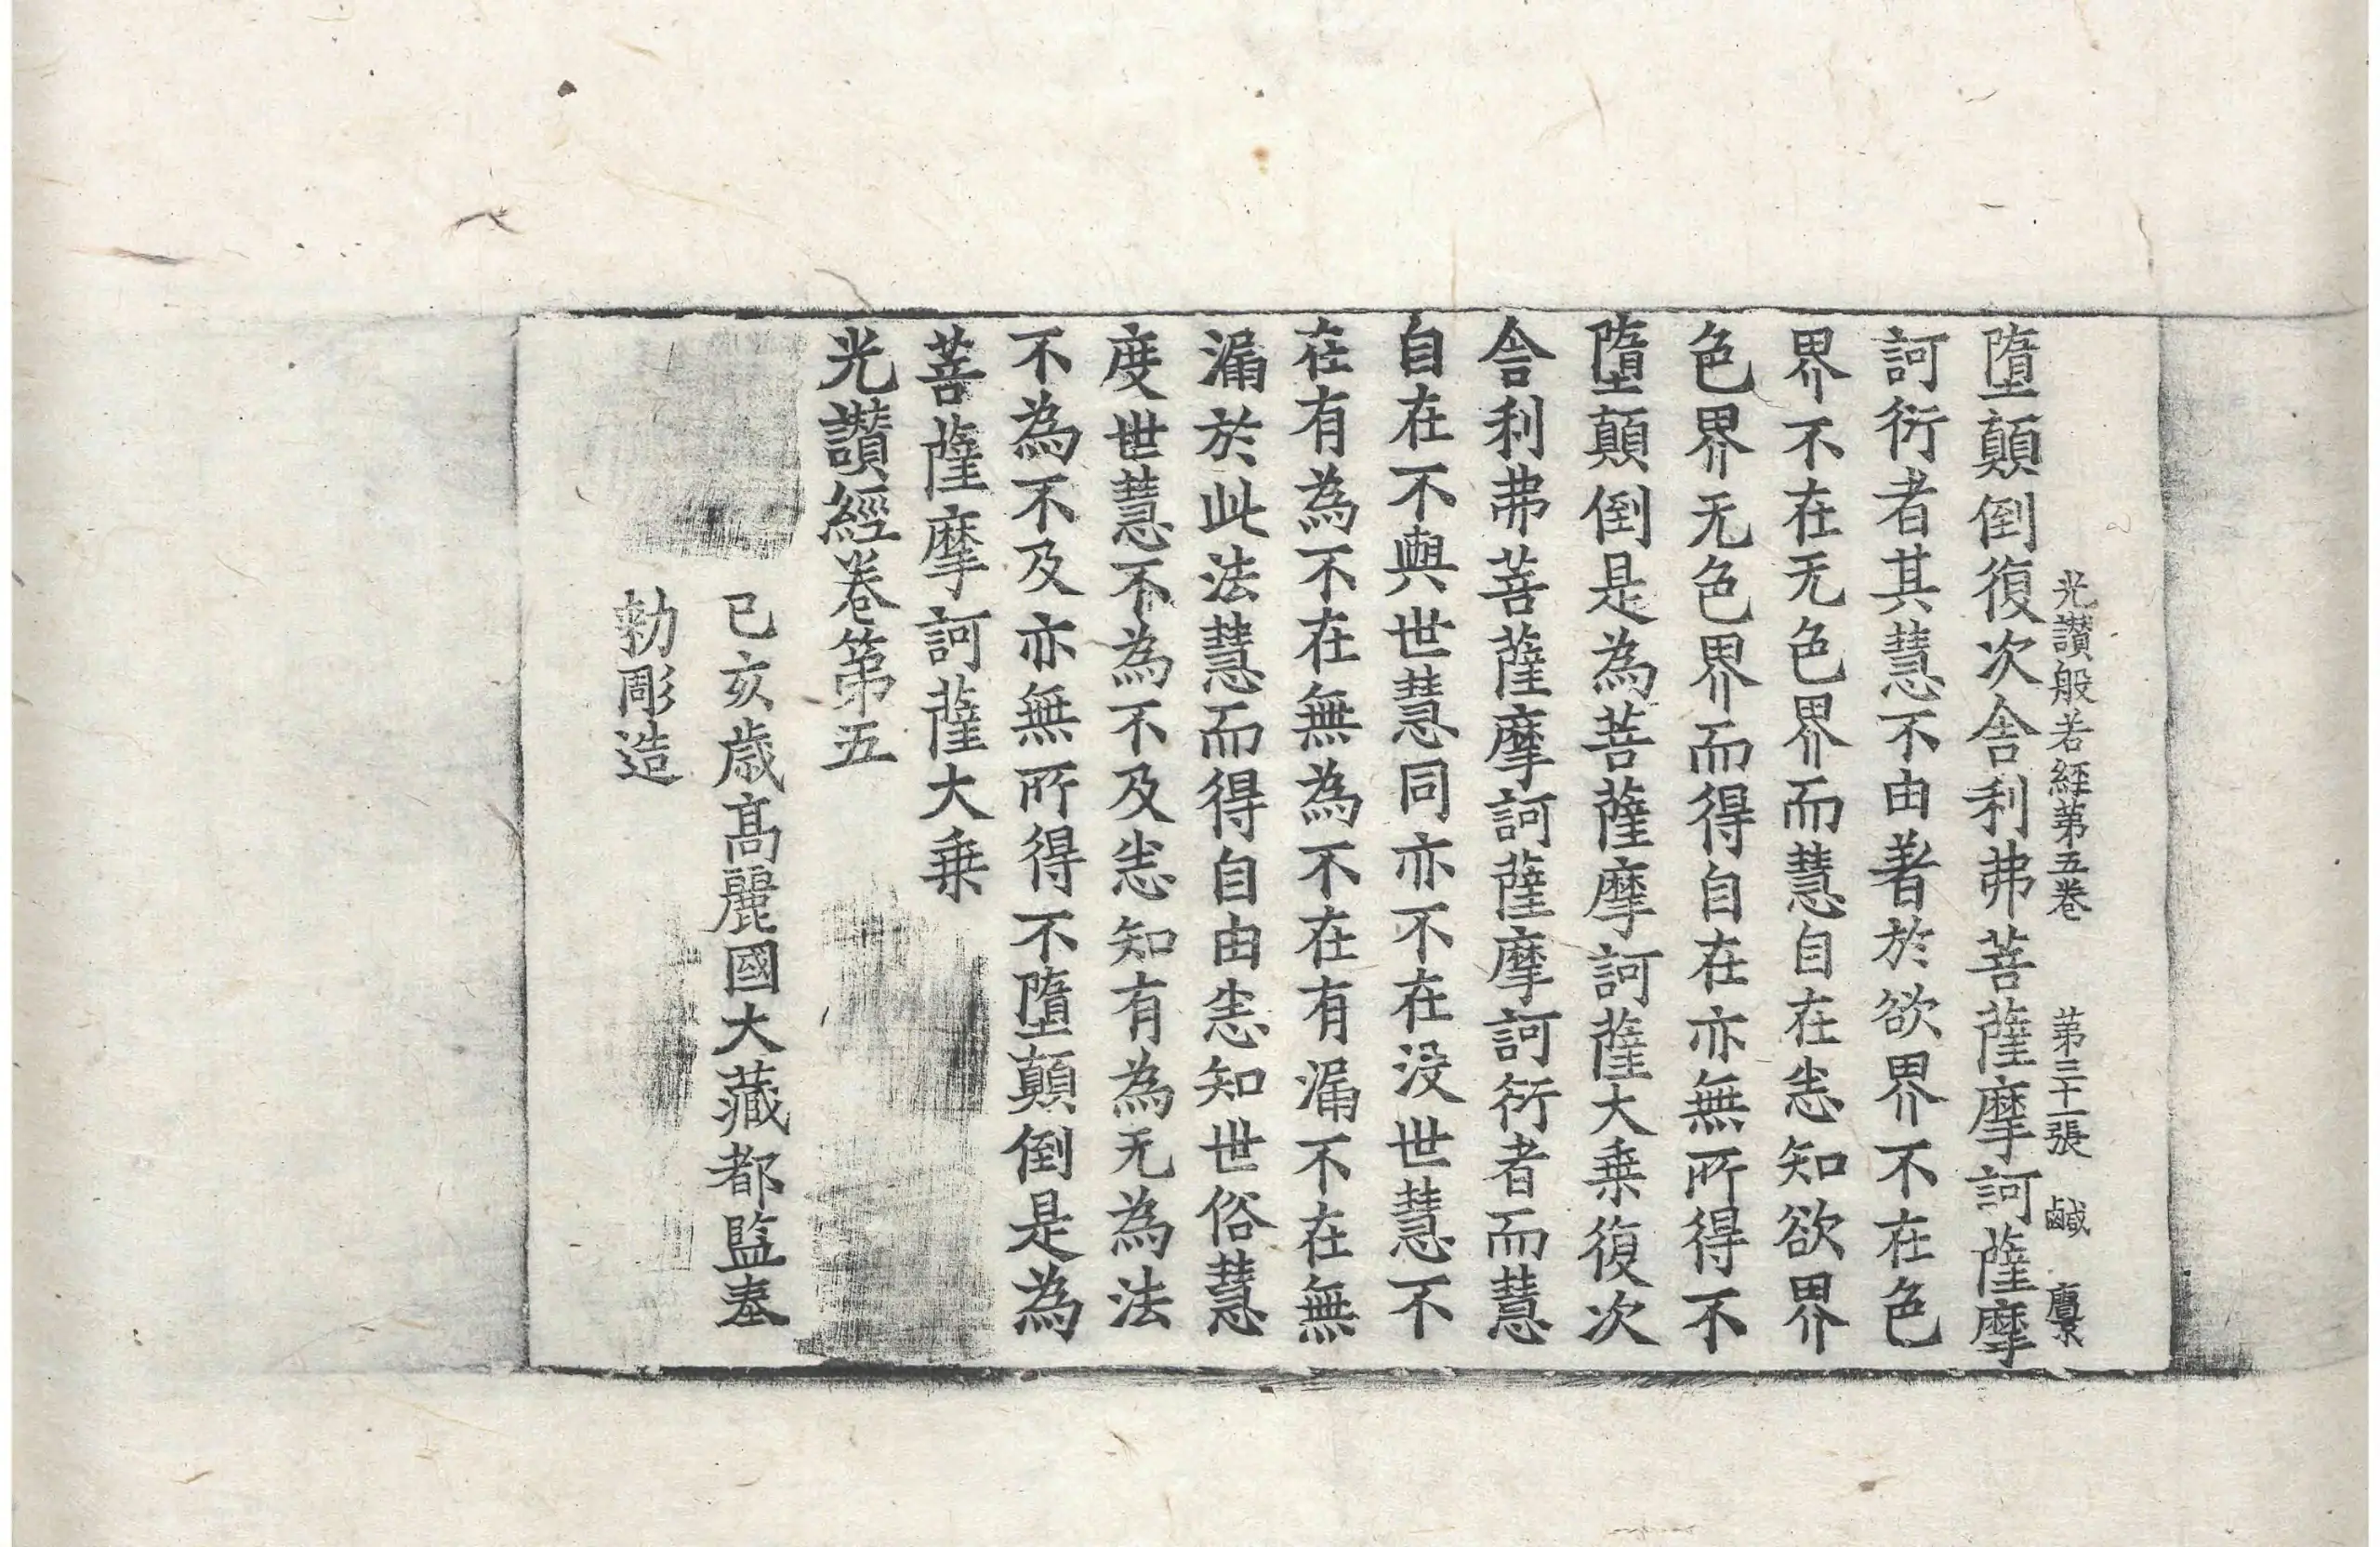 光讃般若經第五卷 第三十一張 鹹
墮顛倒復次舍利弗菩薩摩訶薩摩
訶衍者其慧不由著於欲界不在色
界不在无色界而慧自在悉知欲界
色界无色界而得自在亦無所得不
墮顛倒是為菩薩摩訶薩大乗復次
舍利弗菩薩摩訶薩摩訶衍者而慧
自在不與世慧同亦不在没世慧不
在有為不在無為不在有漏不在無
漏於此法慧而得自由悉知世俗慧
度世慧不為不及悉知有為无為法
不為不及亦無所得不墮顛倒是為
菩薩摩訶薩大乗
光讃經卷第五
己亥歳髙麗國大藏都監奉
勅彫造